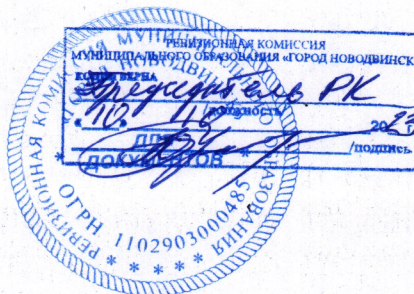 РЕВИЗИОННАЯ КОМИССИЯ
МУНИЦИПАЛЬНОГО ОБРАЗОВАНИЯ «ГОРОД НОВОДВИНСК
КОПИЯ ВЕРНА
Председатель РК
/должность
« 10 » 2023
/подпись
ДЛЯ
ДОКУМЕНТОВ
РЕВИЗИОННАЯ КОМИССИЯ МУНИЦИПАЛЬНОГО ОБРАЗОВАНИЯ
ОГРН 1102903000485
* * * * *